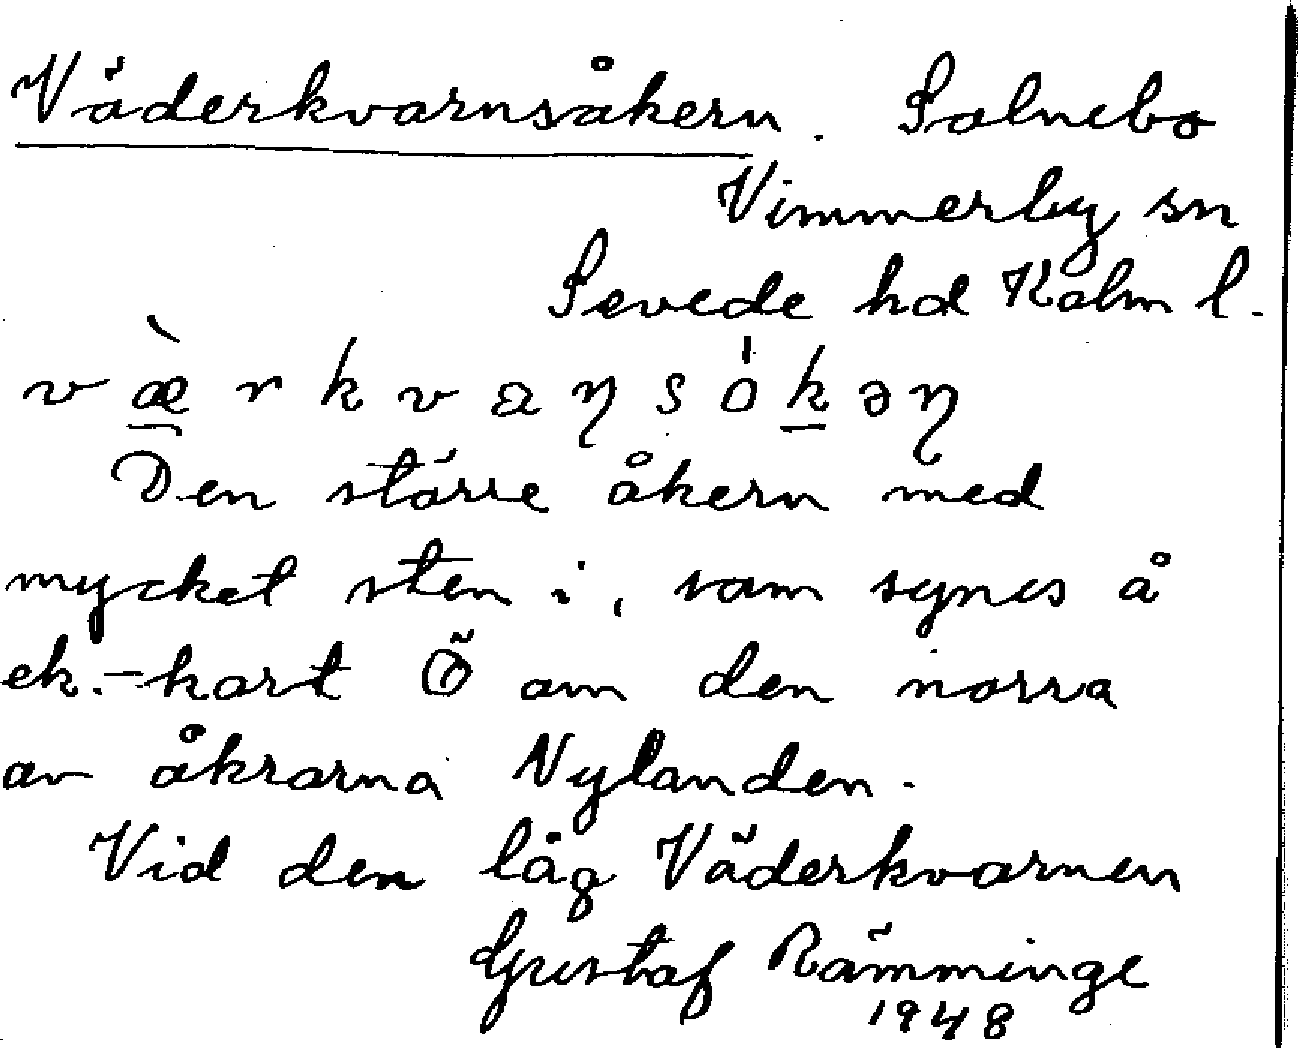 Väderkvarnsåkern. Solnebo
Vimmerby sn
Sevede hd Kalm l.
væ̀rkvaŋsókəŋ
Den större åkern med
mycket sten i, som synes å
ek.-kart Ö om den norra
av åkrarna Nylanden.
Vid den låg Väderkvarnen
Gustaf Rämminge
1948